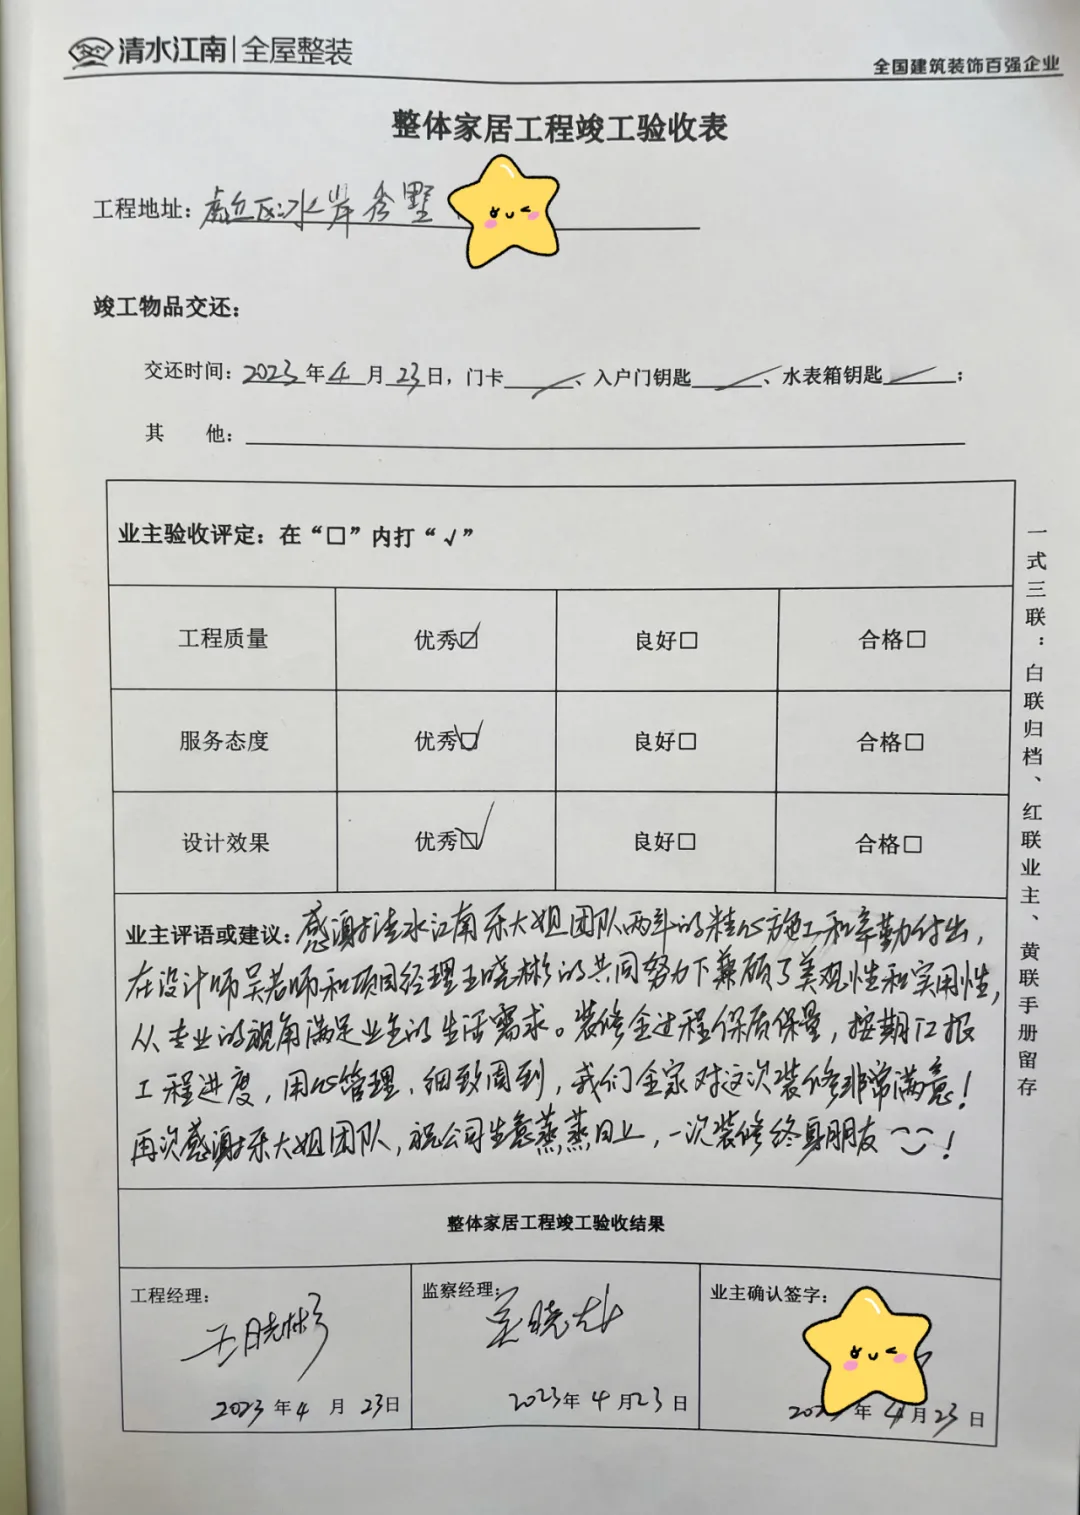 清水江南|全屋整装
全国建筑装饰百强企业
整体家居工程竣工验收表
工程地址：水岸秀墅
竣工物品交还：
交还时间：2023年4月23日，门卡、入户门钥匙、水表箱钥匙；
其 他：
业主验收评定：在“□”内打“√”
工程质量 优秀☑ 良好□ 合格□
服务态度 优秀☑ 良好□ 合格□
设计效果 优秀☑ 良好□ 合格□
业主评语或建议：感谢清水江南乐大姐团队两年的精心施工和辛勤付出，
在设计师吴老师和项目经理王晓彬的共同努力下兼顾了美观性和实用性，
从专业的视角满足业主的生活需求。装修全过程保质保量，按期汇报
工程进度，用心管理，细致周到，我们全家对这次装修非常满意！
再次感谢乐大姐团队，祝公司生意蒸蒸日上，一次装修终身朋友！
整体家居工程竣工验收结果
工程经理：
王晓彬
2023年4月23日
监察经理：
2023年4月23日
业主确认签字：
年4月23日
一式三联：白联归档、红联业主、黄联手册留存